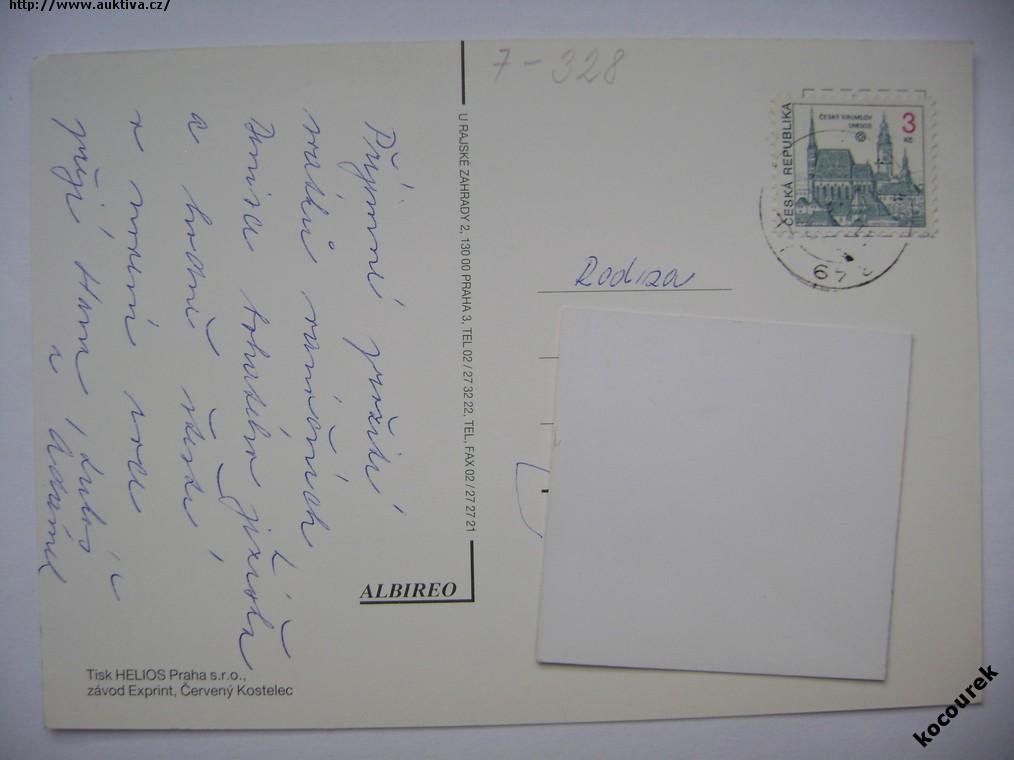 http://www.auktiva.cz/
7-328
ČESKÁ REPUBLIKA
ČESKÝ KRUMLOV
UNESCO
3
Kč
49
Rodina
U RAJSKÉ ZAHRADY 2, 130 00 PRAHA 3, TEL 02 / 27 32 22, TEL, FAX 02 / 27 27 21
Příjemné prožití
svátků vánočních
bohatého Ježíška
a hodně štěstí
v novém roce
přejí Hana, Luboš
a
ALBIREO
Tisk HELIOS Praha s.r.o.,
závod Exprint, Červený Kostelec
kocourek